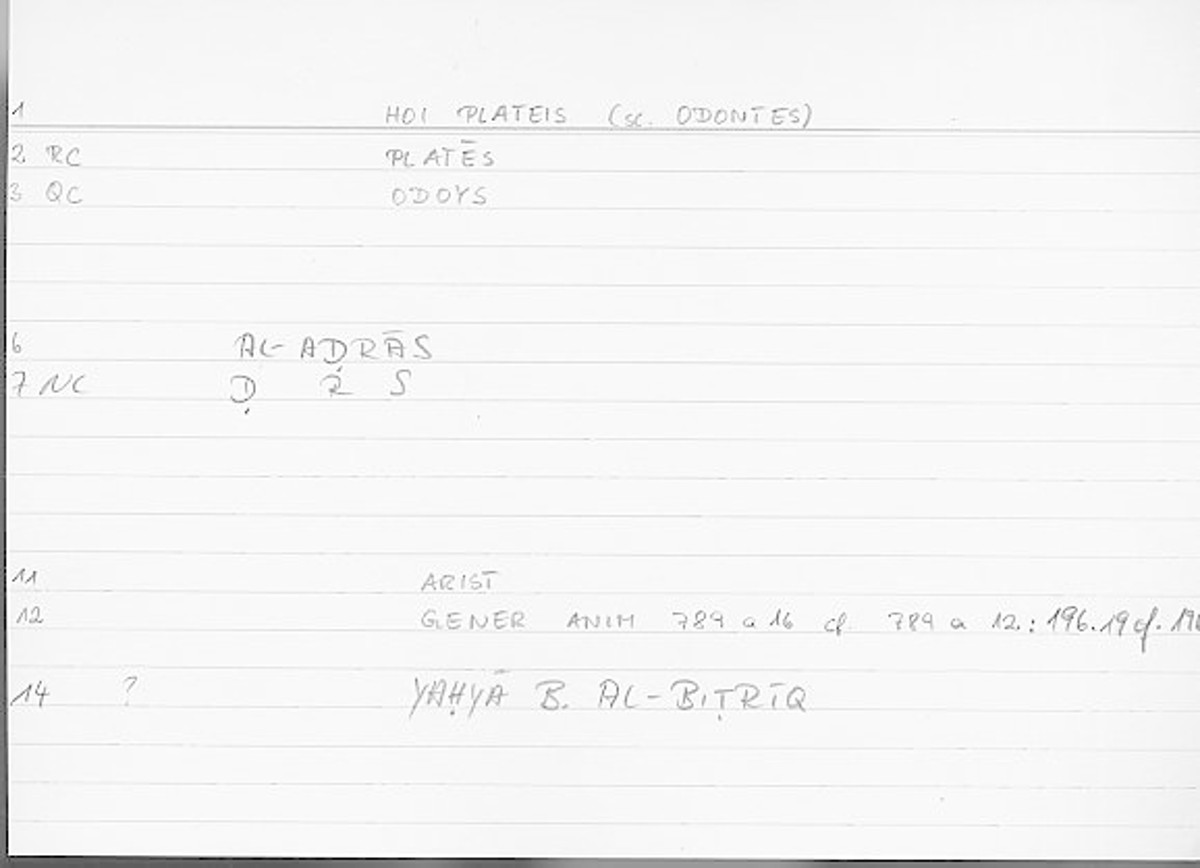 1 HOI PLATEIS (sc. ODONTES)
2 RC PLATĒS
3 QC ODOYS
6 AL-AḌRĀS
7 NC Ḍ R S
11 ARIST
12 GENER ANIM 789 a 16 cf. 789 a 12.: 196.19 cf.
14 ? YAḤYĀ B. AL-BIṬRĪQ